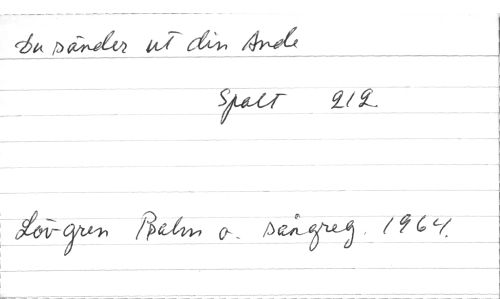 Du sänder ut din Ande
Spalt 212.
Lövgren Psalm o. sångreg. 1964.